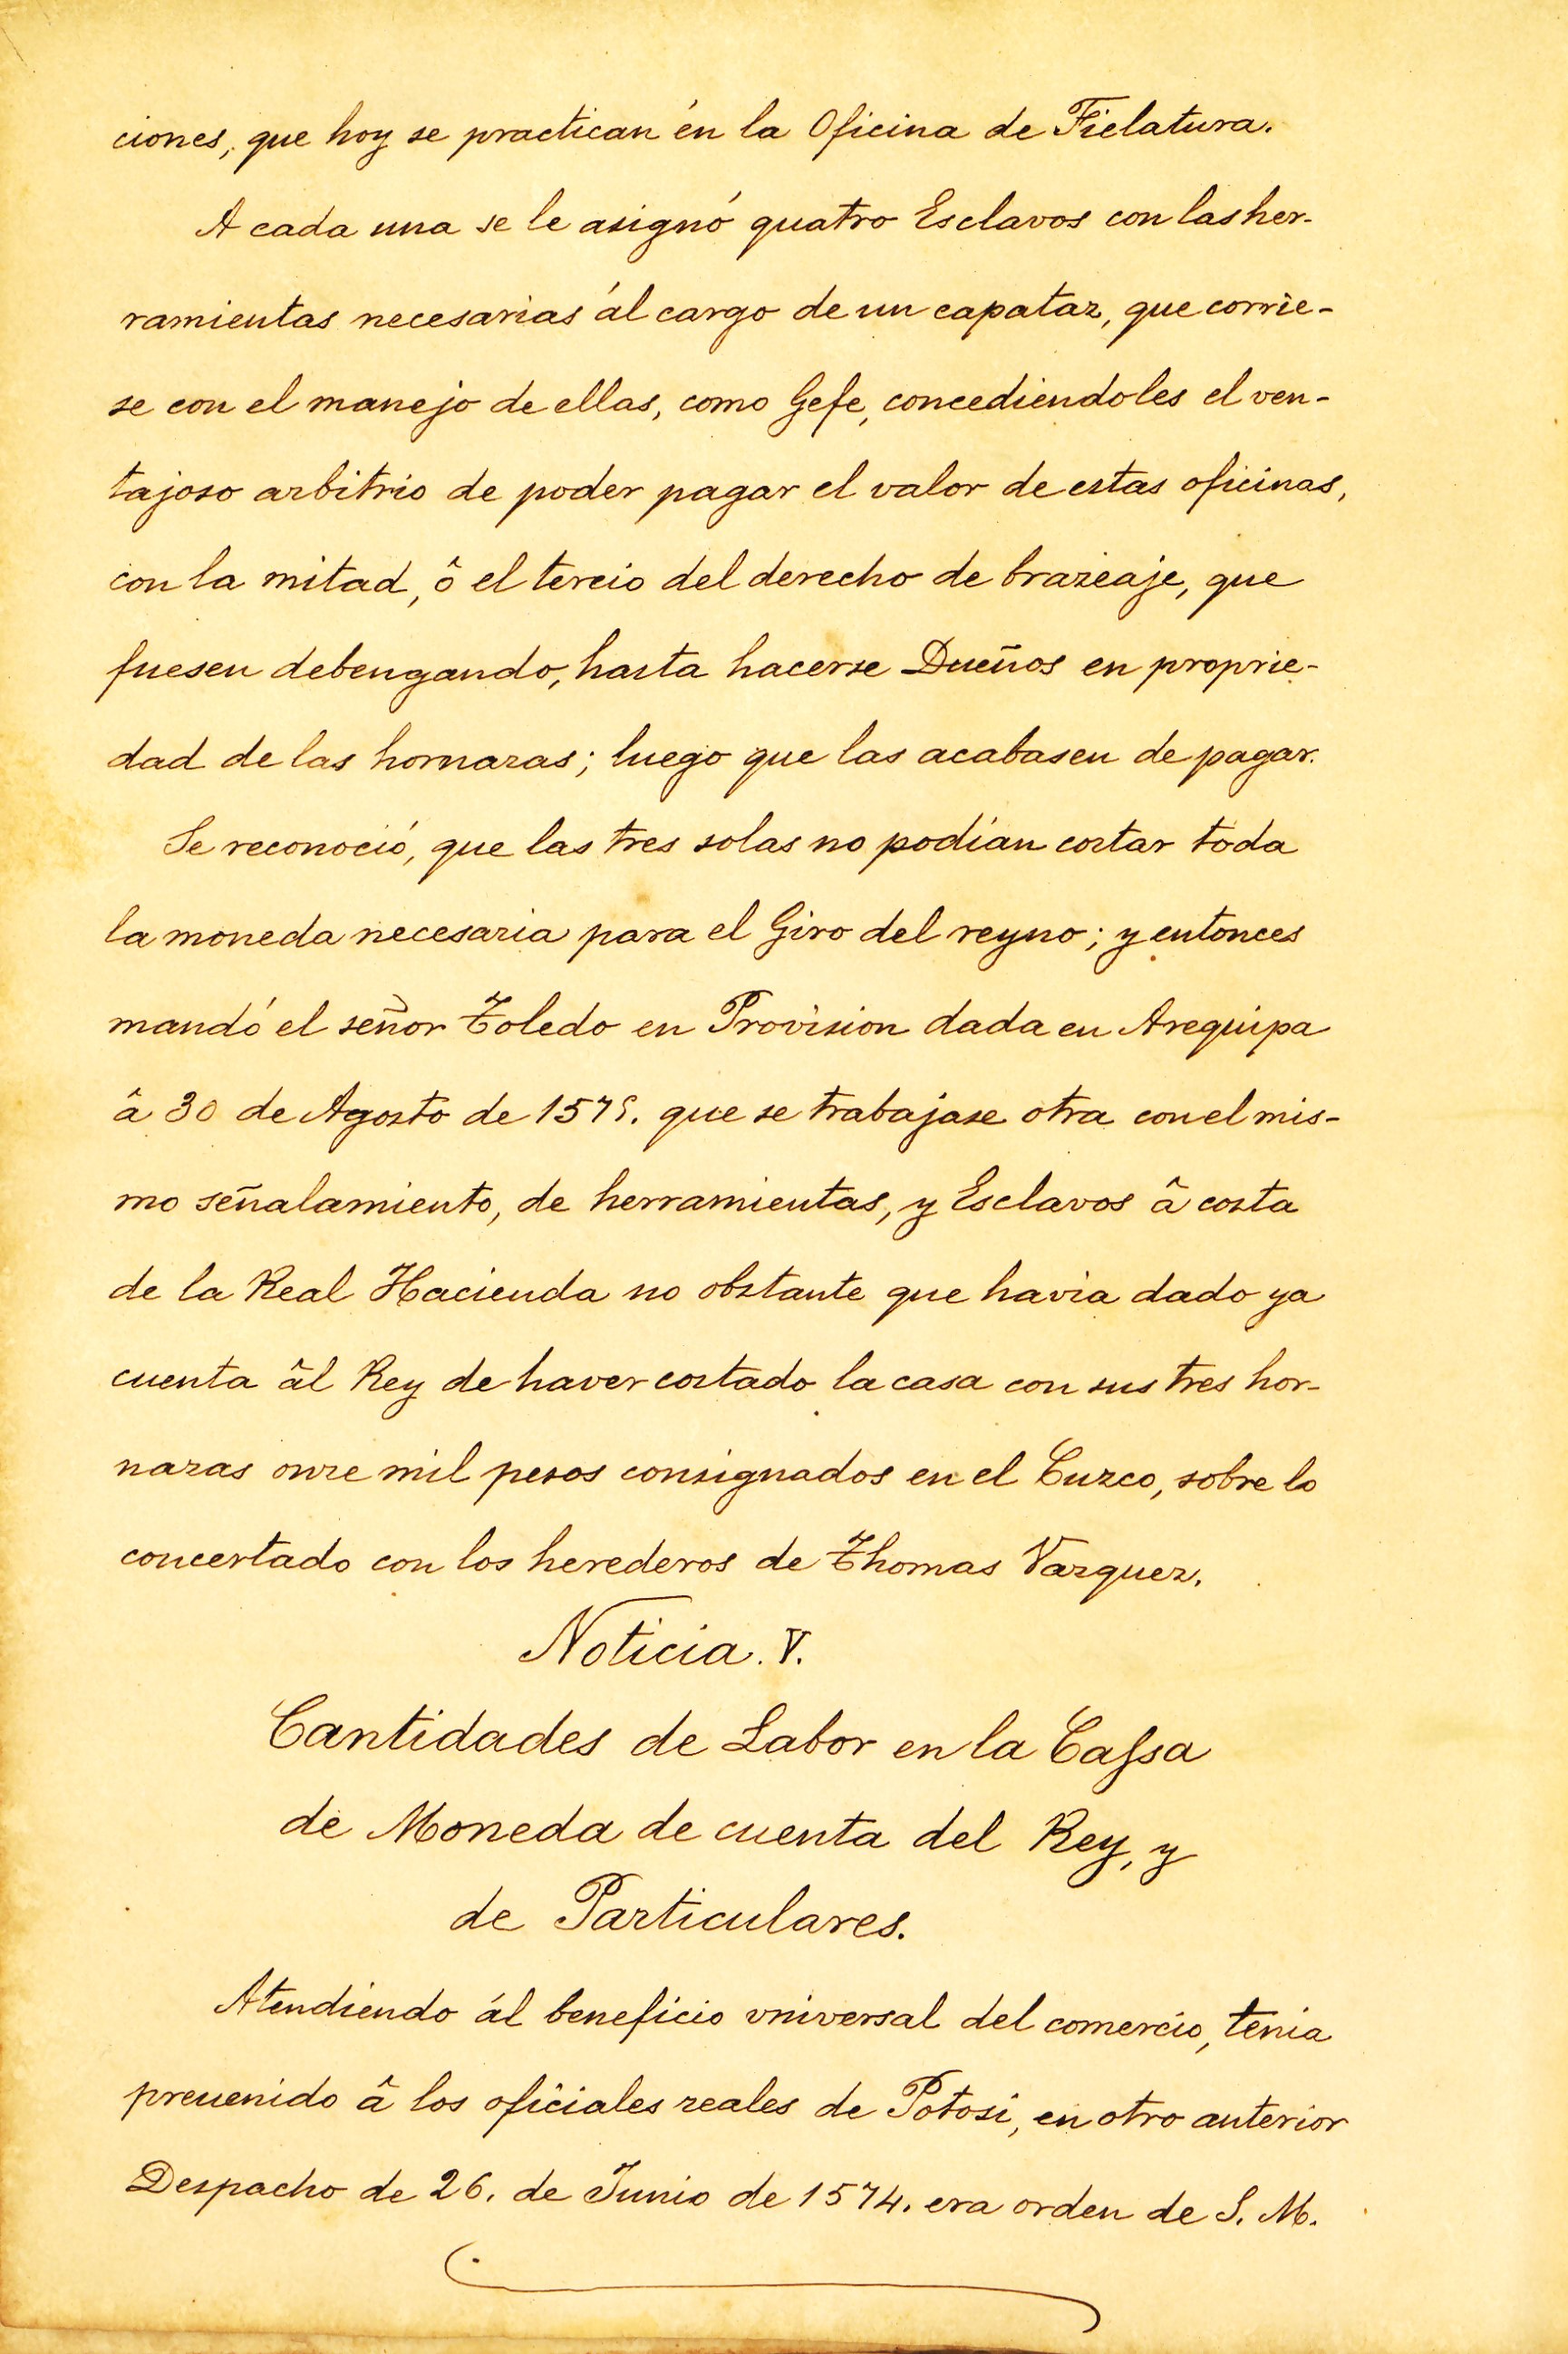 ciones, que hoy se practican én la Oficina de Fielatura.
A cada una se le asignó quatro Esclavos con las her-
ramientas necesarias ál cargo de un capataz, que corrie-
se con el manejo de ellas, como Gefe, concediendoles el ven-
tajoso arbitrio de poder pagar el valor de estas oficinas,
con la mitad, ô el tercio del derecho de brazeaje, que
fuesen debengando, hasta hacerse Dueños en proprie-
dad de las hornazas; luego que las acabasen de pagar.
Se reconoció, que las tres solas no podían cortar toda
la moneda necesaria para el Giro del reyno; y entonces
mandó el señor Toledo en Provision dada en Arequipa
â 30 de Agosto de 1575. que se trabajase otra con el mis-
mo señalamiento, de herramientas, y Esclavos â costa
de la Real Hacienda no obstante que havia dado ya
cuenta âl Rey de haver costado la casa con sus tres hor-
nazas onze mil pesos consignados en el Cuzco, sobre lo
concertado con los herederos de Thomas Vazquez.
Noticia. V.
Cantidades de Labor en la Cassa
de Moneda de cuenta del Rey, y
de Particulares.
Atendiendo ál beneficio vniversal del comercio, tenia
preuenido â los oficiales reales de Potosi, en otro anterior
Despacho de 26. de Junio de 1574. era orden de S. M.